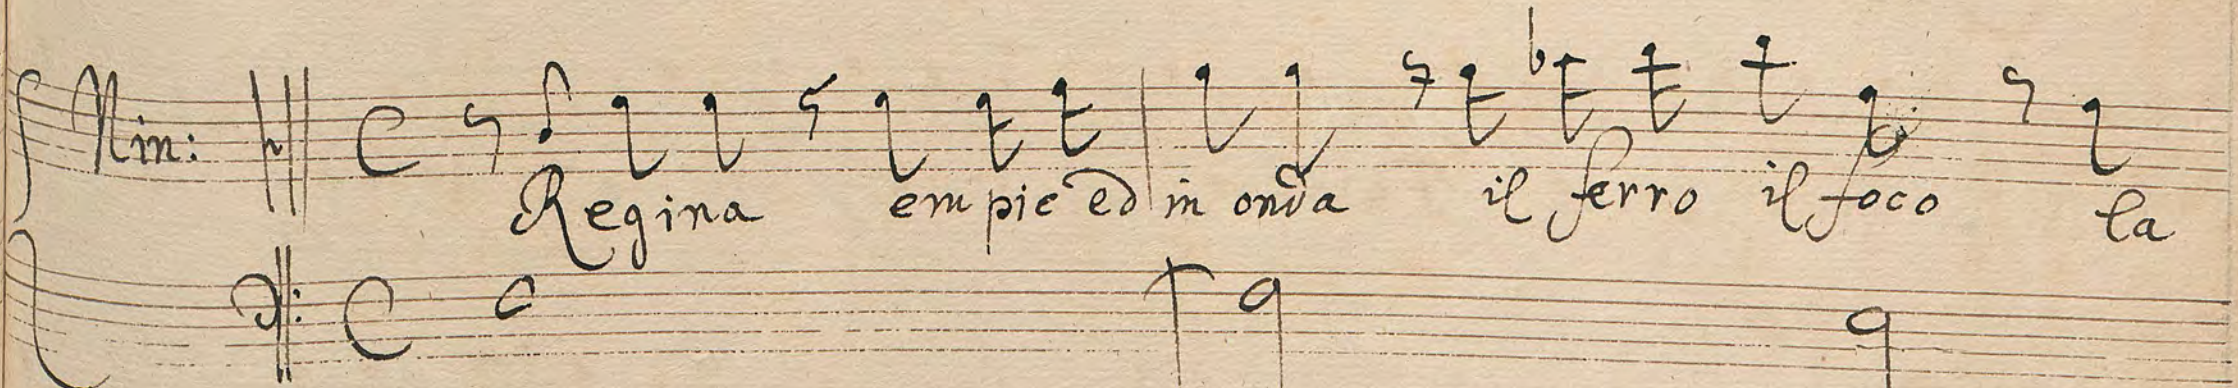 Nin:
Regina empie ed in onda il ferro il foco la